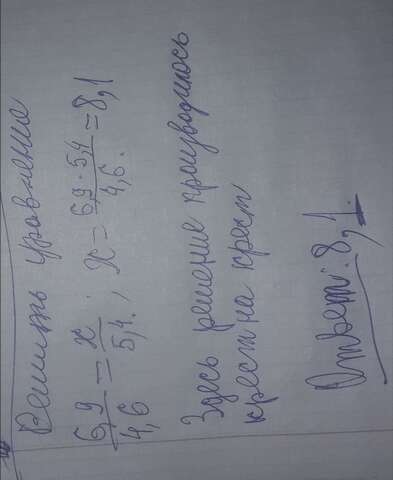 Решить уравнение
6,9/4,6 = x/5,4. ; x = 6,9 · 5,4/4,6. = 8,1
Здесь решение производилось
крест на крест
Ответ: 8,1.